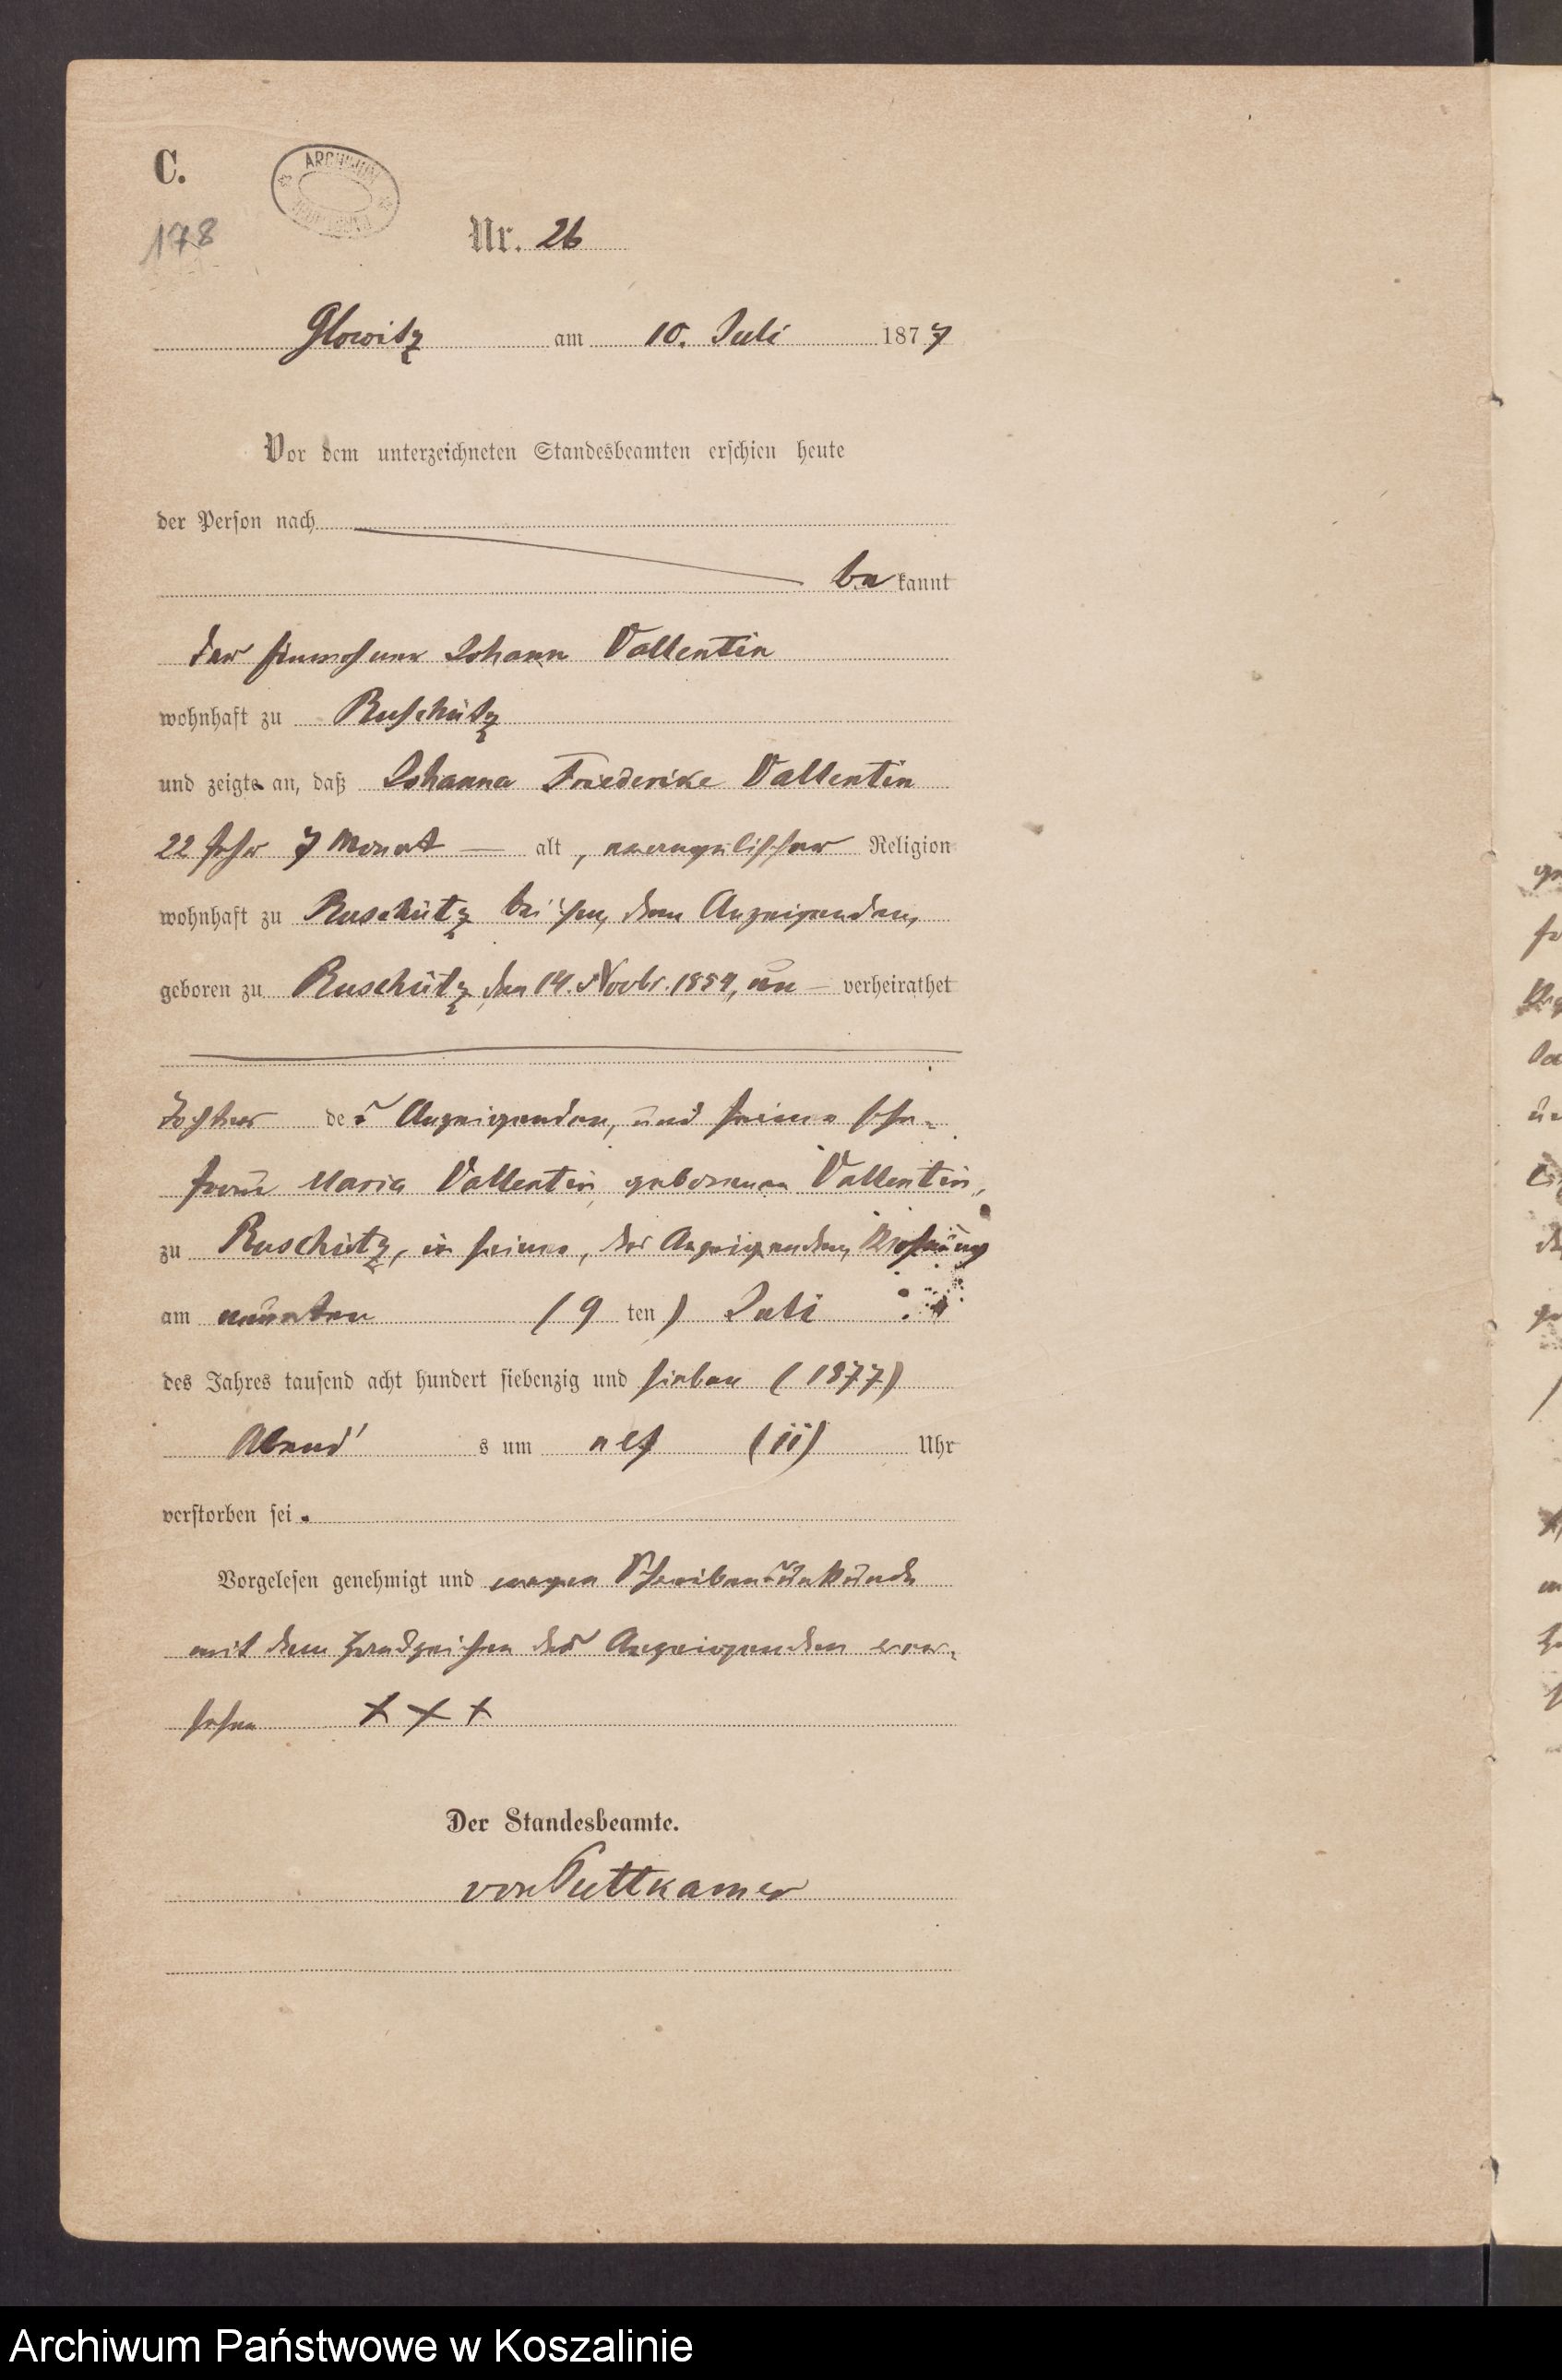 C.
ARCHIWUM
178
Nr. 26
Glowitz am 10. Juli 1877
Vor dem unterzeichneten Standesbeamten erschien heute
der Person nach
be kannt
der Einwohner Johann Vallentin
wohnhaft zu Ruschütz
und zeigte an, daß Johanna Friederike Vallentin
22 Jahr 7 Monat — alt, evangelischer Religion
wohnhaft zu Ruschütz bei ihm, dem Anzeigenden,
geboren zu Ruschütz den 14. Novbr. 1854, un — verheirathet
Tochter des Anzeigenden, und seiner Ehe-
frau Maria Vallentin geborenen Vallentin,
zu Ruschütz, in seiner, des Anzeigenden, Wohnung
am neunten (9 ten) Juli
des Jahres tausend acht hundert siebenzig und sieben (1877)
Abend s um elf (11) Uhr
verstorben sei.
Vorgelesen genehmigt und wegen Schreibensunkunde
mit dem Handzeichen des Anzeigenden ver-
sehen +++
Der Standesbeamte.
von Puttkamer
Archiwum Państwowe w Koszalinie